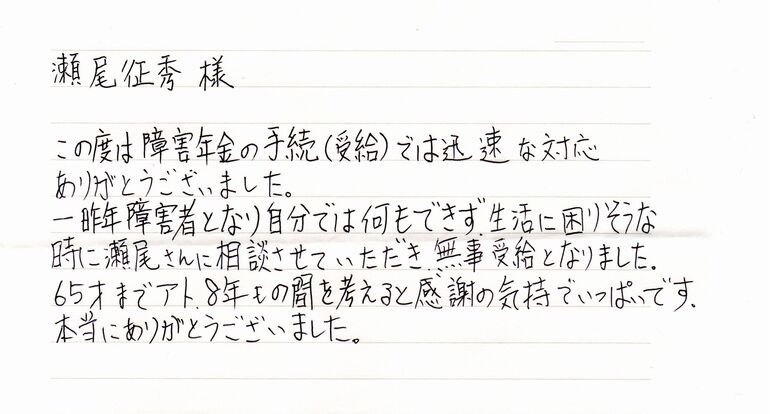 瀬尾征秀 様
この度は障害年金の手続(受給)では迅速な対応
ありがとうございました。
一昨年障害者となり自分では何もできず生活に困りそうな
時に瀬尾さんに相談させていただき無事受給となりました.
65才までアト8年もの間を考えると感謝の気持でいっぱいです.
本当にありがとうございました。